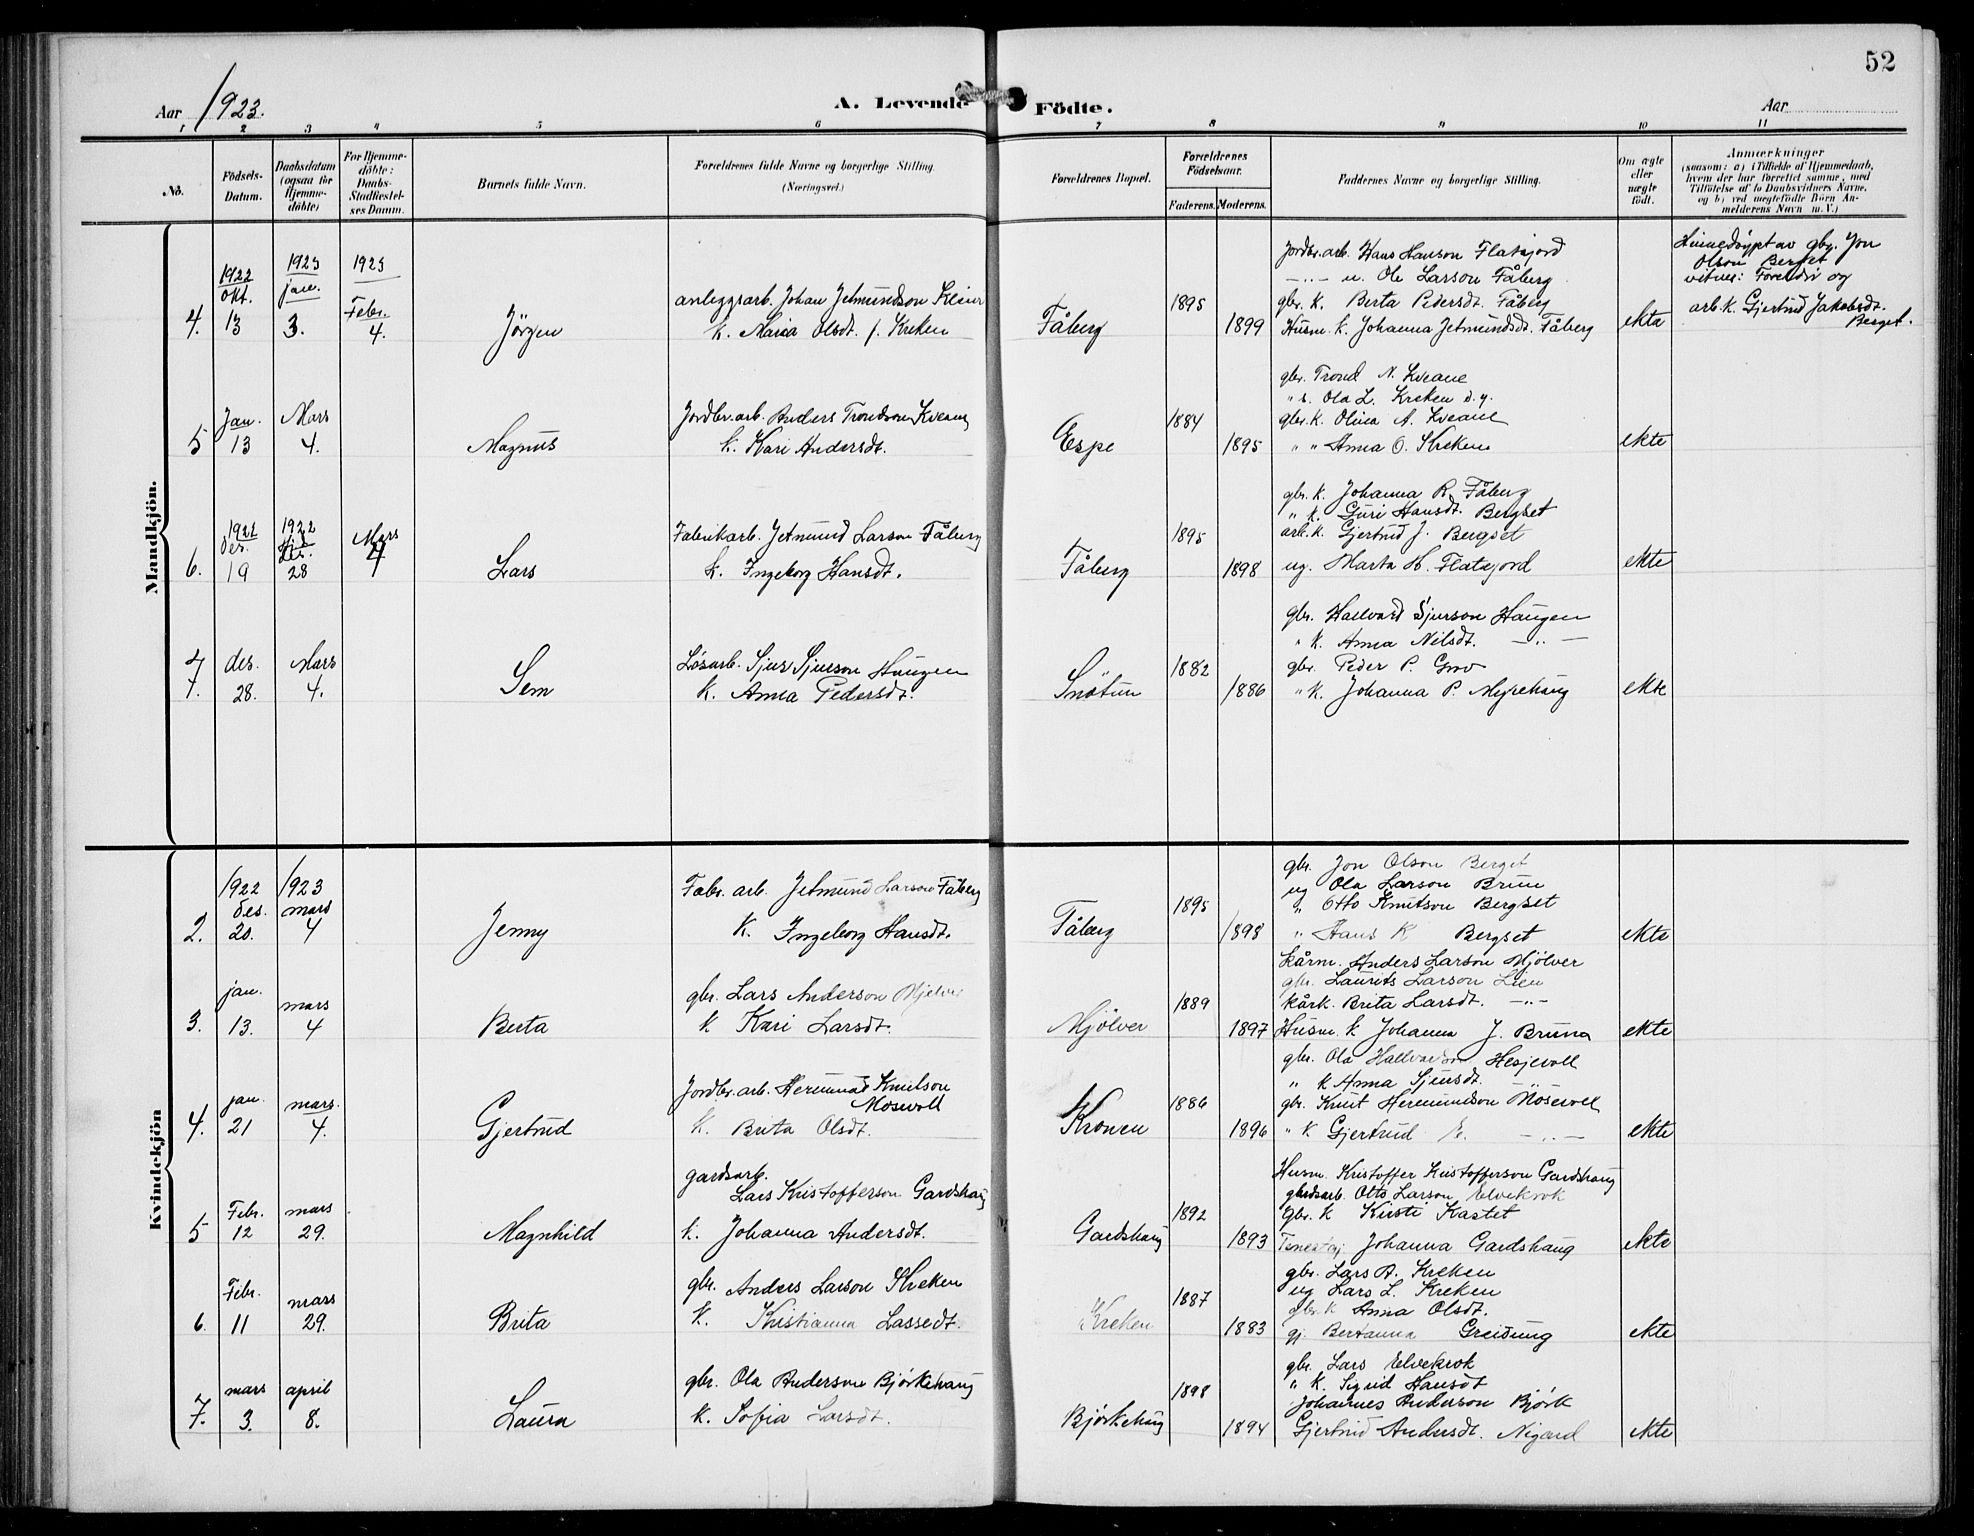 52
Aar 1923.
A. Levende Födte.
Aar
1 2 3 4 5 6 7 8 9 10 11
No.
Födsels-Datum.
Daabsdatum (ogsaa for Hjemme-döbte)
For Hjemme-döbte: Daabs-Stadfæstel-ses Datum.
Barnets fulde Navn.
Forældrenes fulde Navne og borgerlige Stilling. (Næringsvei.)
Forældrenes Bopæl.
Forældrenes Födselsaar.
Faderens. Moderens.
Faddernes Navne og borgerlige Stilling.
Om ægte eller uægte födt.
Anmærkninger
(saasom: a) i Tilfælde af Hjemmedaab,
hvem der har forrettet samme, med
Tilföielse af to Daabsvidners Navne,
og b) ved uegtefödte Börn An-
melderens Navn m. V.)
Mandkjön.
4. 1922 Okt. 13 1923 jan. 3. 1923 Febr. 4. Jörgen
anleggsarb. Johan Jetmundson
k. Maria Olsdt. f. Kreken
Fåberg 1895 1899
Jordbr.arb. Hans Hanson Flatejord
—"— u. Ole Larson Fåberg
gbr. k. Berta Pedersdt. Fåberg
Husm. k. Johanna Jetmundsdt. Fåberg
ekta
Himedöypt av gbr. Jon
Olson Berget
vitne: Foreldri og
arb. k. Gjertrud Jakobsdt.
Berget.
5 Jan. 13 Mars 4. Magnus
Jordbr.arb. Anders Trondson Kveane
k. Kari Andersdt.
Espe 1884 1895
gbr. Trond N. Kveane
" s. Ola L. Kreken d.y.
gbr. k. Olina A. Kveane
" " Anna O. Kreken
ekte
6. Des. 19 1922 Des. 28 Mars 4 Lars
Fabrikarb. Jetmund Larson Fåberg
k. Ingeborg Hansdt.
Fåberg 1895 1898
gbr. k. Johanna R. Fåberg
" k. Guri Hansdt. Bergset
arb. k. Gjertrud J. Bergset
ug. Marta H. Flatejord
ekte
7. des. 28. Mars 4. Sem
Lösarb. Sjur Sjurson Haugen
k. Anna Pedersdt.
Snötun 1882 1886
gbr. Hallvard Sjurson Haugen
" k. Anna Nilsdt. —"—
gbr. Peder P. Grov
" k. Johanna P. Myrehaug
ekte
Kvindekjön
2. 1922 Des. 20. 1923 mars 4 Jenny
Fabr. arb. Jetmund Larson Fåberg
k. Ingeborg Hansdt.
Fåberg 1895 1898
gbr. Jon Olson Berget
ug Ola Larson Brun
" Otto Knutson Bergset
" Hans K Bergset
ekte
3. jan. 13. mars 4 Berta
gbr. Lars Anderson Mjelver
k Kari Larsdt.
Mjölver 1889 1897
kårm. Anders Larson Mjölver
gbr. Laurits Larson Lien
kårk. Brita Larsdt. —"—
Husm. k Johanna J. Bruna
ekte
4. jan. 21 mars. 4. Gjertrud
Jordbr. arb. Hermund Knutson
Mosevoll
k. Brita Olsdt.
Kronen 1886 1896
gbr. Ola Hallvarson Hesjevoll
" k Anna Sjursdt.
gbr. Knut Hermundson Mosevoll
" k Gjertrud E. —"—
ekte
5 Febr. 12 mars 29. Magnhild
gardsarb.
Lars Kristofferson Gardshaug
k. Johanna Andersdt.
Gardshaug 1892 1893
Husm. Kristoffer Kristofferson Gardshaug
gardsarb. Otto Larson Elvekrok
gbr. k Kirsti Kastet
Johanna Gardshaug
ekte
6. Febr. 11 mars 29. Brita
gbr. Anders Larson Kreken
k. Kristianna Lassedt.
Kreken 1887 1883
gbr. Lars A. Kreken
ug Lars L. Kreken
gbr. k Anna Olsdt.
gj. Bertanna Greidung
ekte
7. mars 3. april 8. Laura
gbr. Ola Anderson Björkehaug
k. Sofia Larsdt.
Björkehaug 1898 1894
gbr. Lars Elvekrok
" k. Sigrid Hansdt
Johannes Anderson Björk
Gjertrud Andersdt. Nigard
ekte